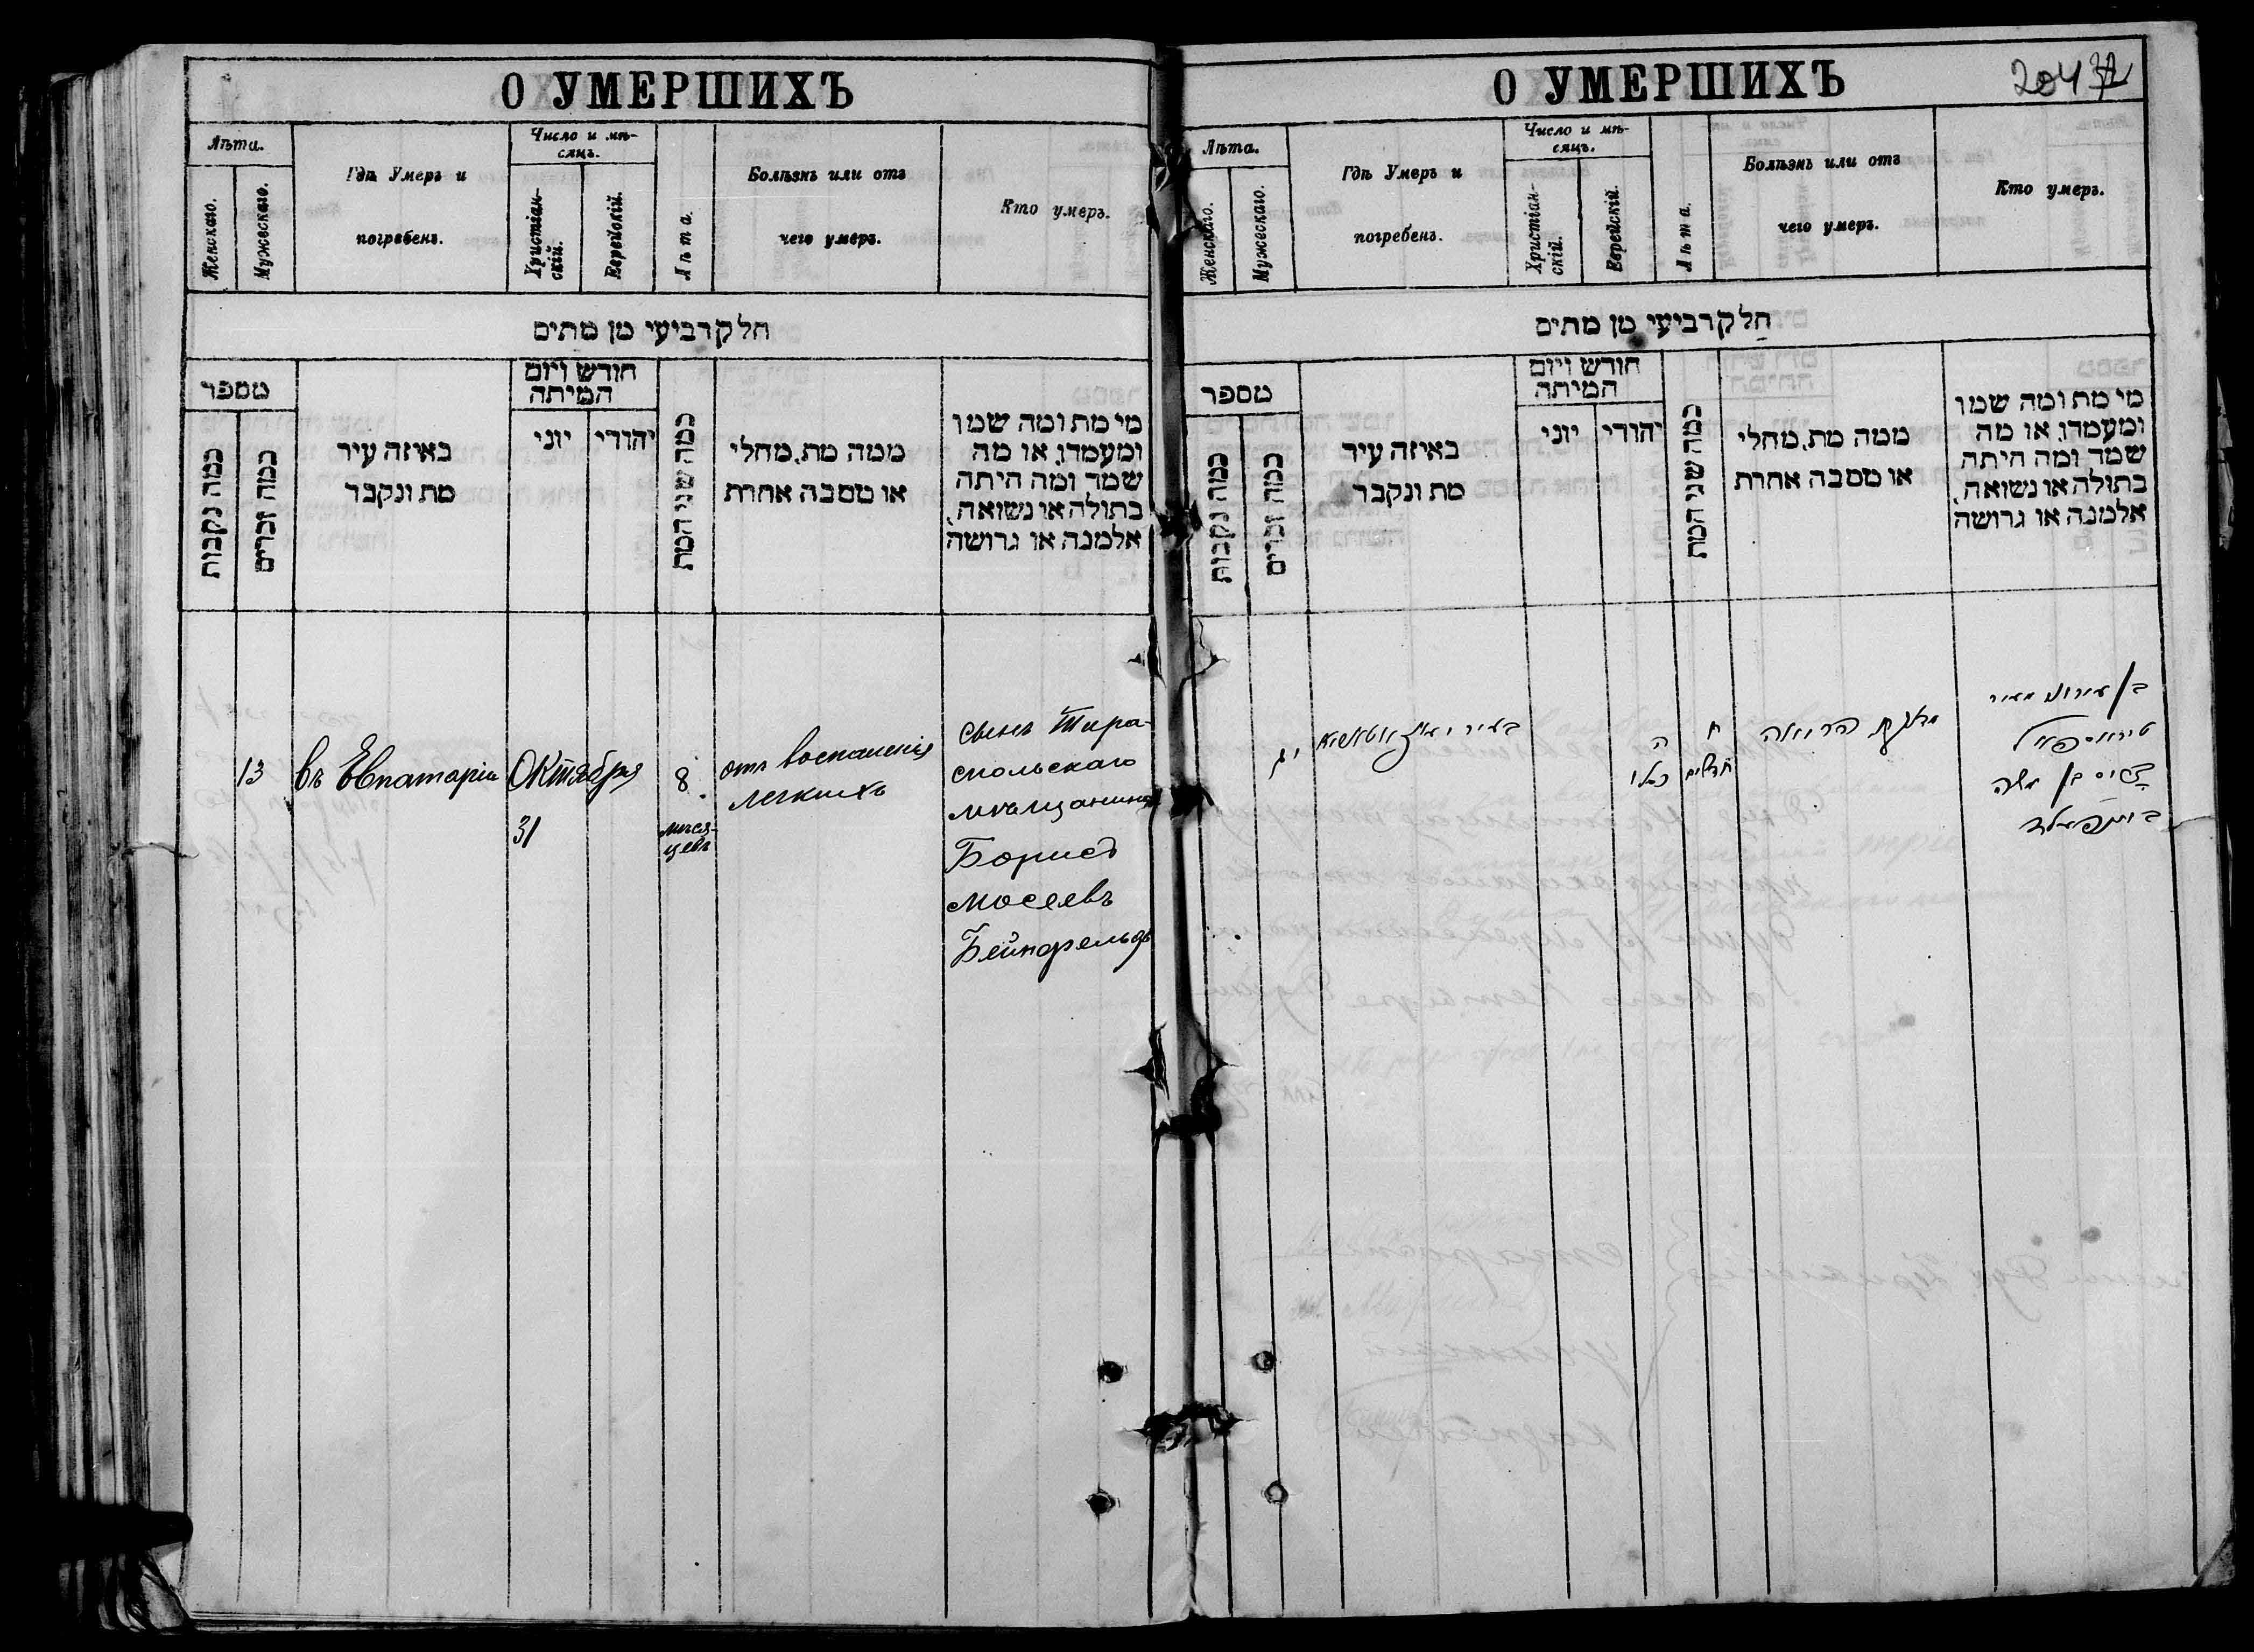 О УМЕРШИХЪ
Лѣта.
Женскаго.
Мужескаго.
Гдѣ Умеръ и
погребенъ.
Число и мѣ-
сяцъ.
Христіан-
скій.
Еврейскій.
Лѣта.
Болѣзнь или отъ
чего умеръ.
Кто умеръ.
חלק רביעי מן מתים
מספר
כמה נקבות
כמה זכרים
באיזה עיר
מת ונקבר
חודש ויום
המיתה
יוני
יהודי
כמה שני המת
ממה מת, מחלי
או מסבה אחרת
מי מת ומה שמו
ומעמדו, או מה
שמד ומה היתה
בתולה או נשואה,
אלמנה או גרושה
13
въ Евпаторіи
Октября
31
8
мѣся-
цевъ
отъ воспаленія
легкихъ
сынъ Тира-
спольскаго
мѣщанина
Борисъ
Мосеевъ
Бейнфельдъ
О УМЕРШИХЪ
204 37
Лѣта.
Женскаго.
Мужескаго.
Гдѣ Умеръ и
погребенъ.
Число и мѣ-
сяцъ.
Христіан-
скій.
Еврейскій.
Лѣта.
Болѣзнь или отъ
чего умеръ.
Кто умеръ.
חלק רביעי מן מתים
מספר
כמה נקבות
כמה זכרים
באיזה עיר
מת ונקבר
חודש ויום
המיתה
יוני
יהודי
כמה שני המת
ממה מת, מחלי
או מסבה אחרת
מי מת ומה שמו
ומעמדו, או מה
שמד ומה היתה
בתולה או נשואה,
אלמנה או גרושה
יג
בעיר
ה
כסלו
ח
חדשים
מדלקת הריאה
בן עירוני מעיר
טיראספאל
בן משה
ביינפעלד